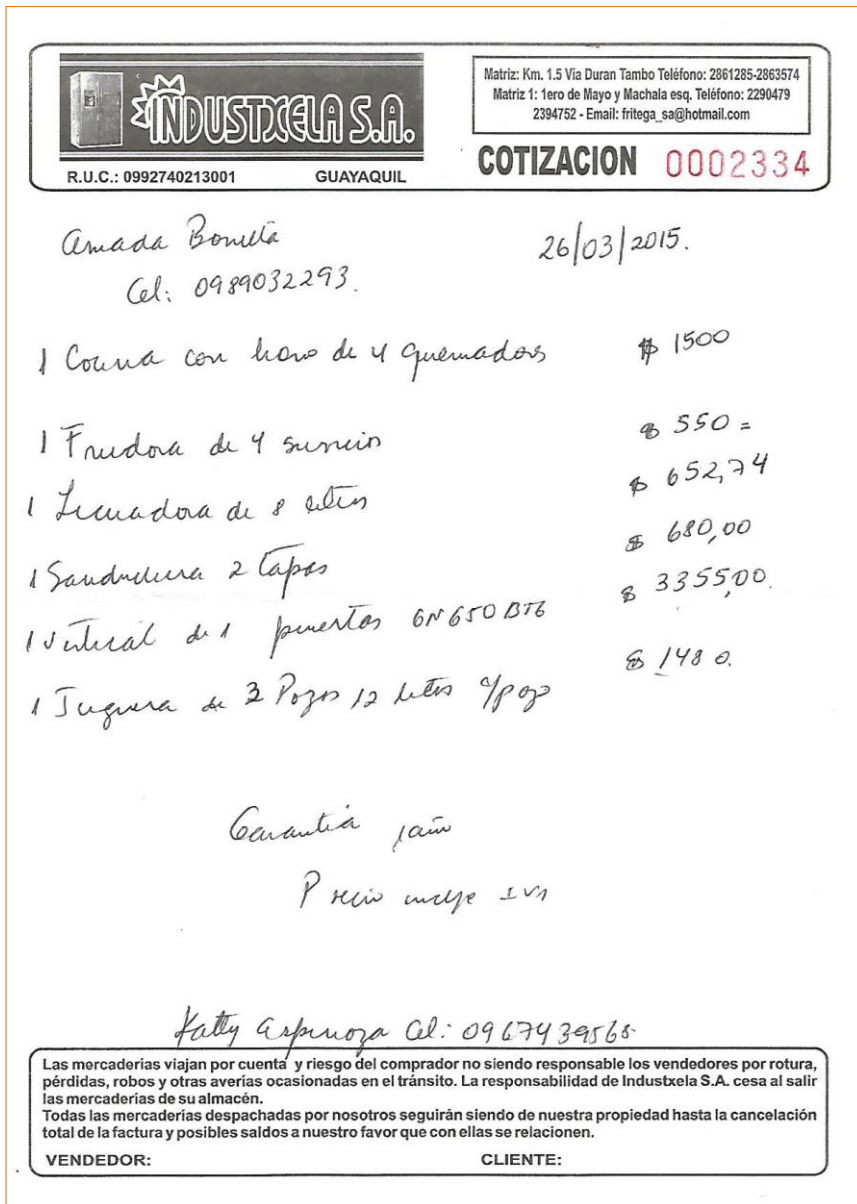 INDUSTXELA S.A.
R.U.C.: 0992740213001 GUAYAQUIL
Matriz: Km. 1.5 Via Duran Tambo Teléfono: 2861285-2863574
Matriz 1: 1ero de Mayo y Machala esq. Teléfono: 2290479
2394752 - Email: fritega_sa@hotmail.com
COTIZACION 0002334
Amada 26/03/2015.
Cel: 0989032293.
1 Cocina con horno de 4 quemadores $ 1500
1 Freidora de 4 $ 550 =
1 Licuadora de 8 litros $ 652,74
1 Sanduchera 2 tapas $ 680,00
1 Vertical de 1 puertas GN650BT6 $ 3355,00.
1 Juguera de 3 Pozos 12 litros c/pozo $ 1480.
Garantia 1 año
Precio incluye IVA
Katty Espinoza Cel: 0967439565
Las mercaderías viajan por cuenta y riesgo del comprador no siendo responsable los vendedores por rotura,
pérdidas, robos y otras averías ocasionadas en el tránsito. La responsabilidad de Industxela S.A. cesa al salir
las mercaderías de su almacén.
Todas las mercaderías despachadas por nosotros seguirán siendo de nuestra propiedad hasta la cancelación
total de la factura y posibles saldos a nuestro favor que con ellas se relacionen.
VENDEDOR: CLIENTE: